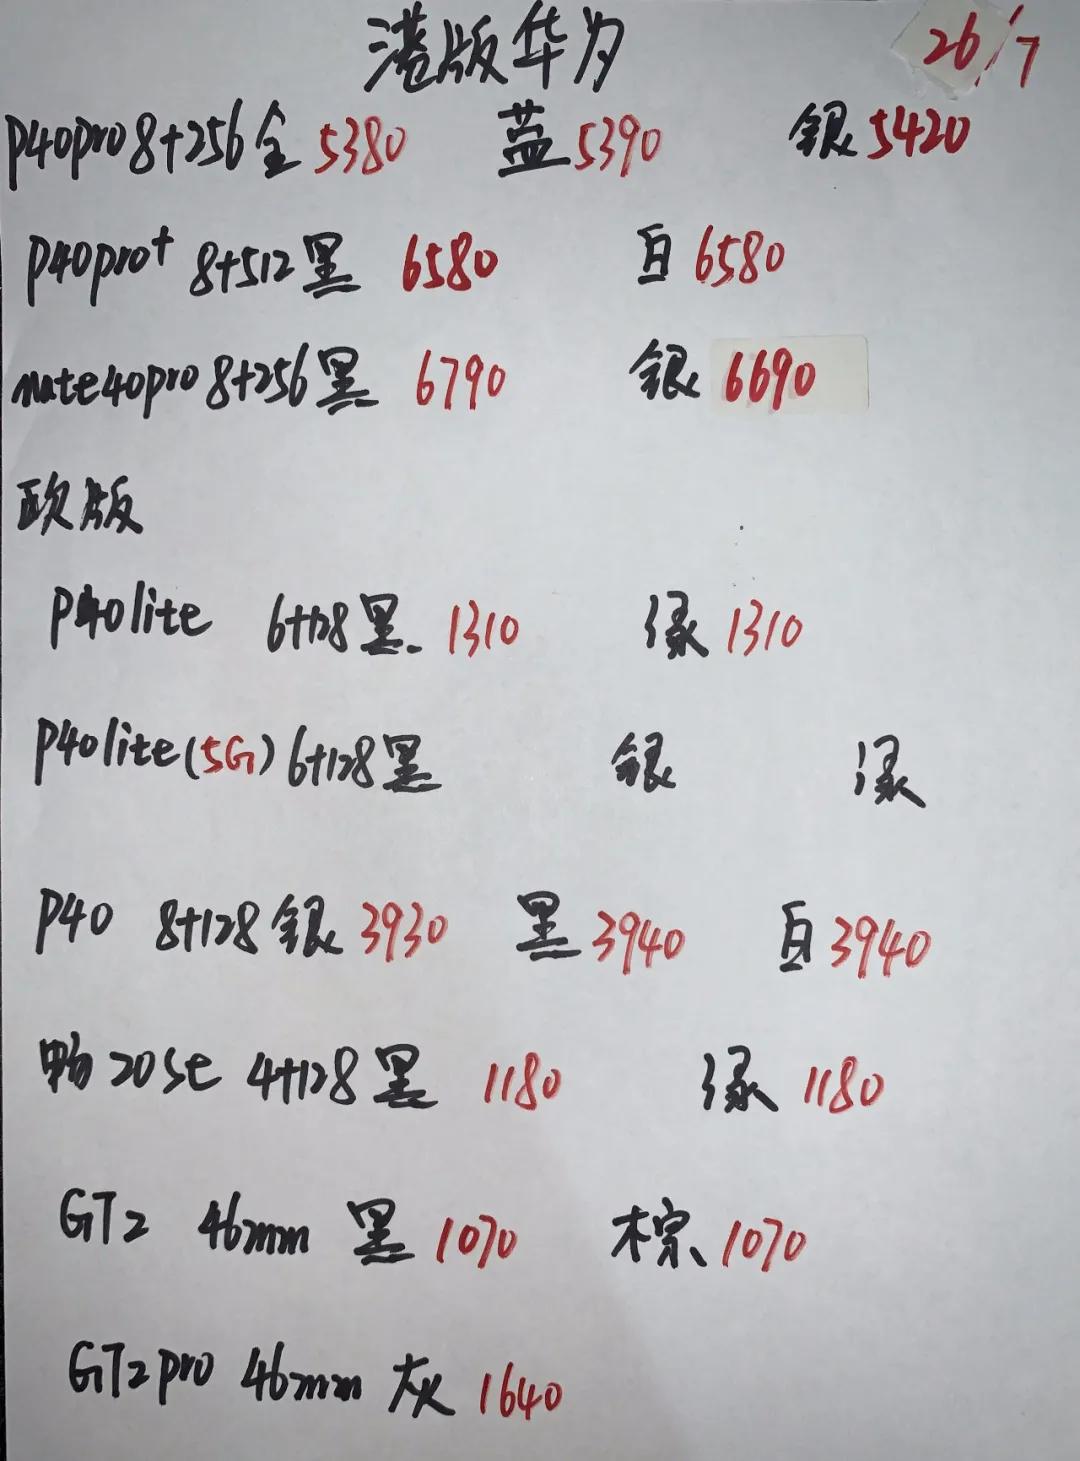 港版华为 26/7
p40pro 8+256 金 5380 蓝 5390 银 5420
p40pro+ 8+512 黑 6580 白 6580
mate40pro 8+256 黑 6790 银 6690
欧版
p40lite 6+128 黑. 1310 绿 1310
p40lite(5G) 6+128 黑 银 绿
p40 8+128 银 3930 黑 3940 白 3940
畅20se 4+128 黑 1180 绿 1180
GT2 46mm 黑 1070 棕 1070
GT2pro 46mm 灰 1640